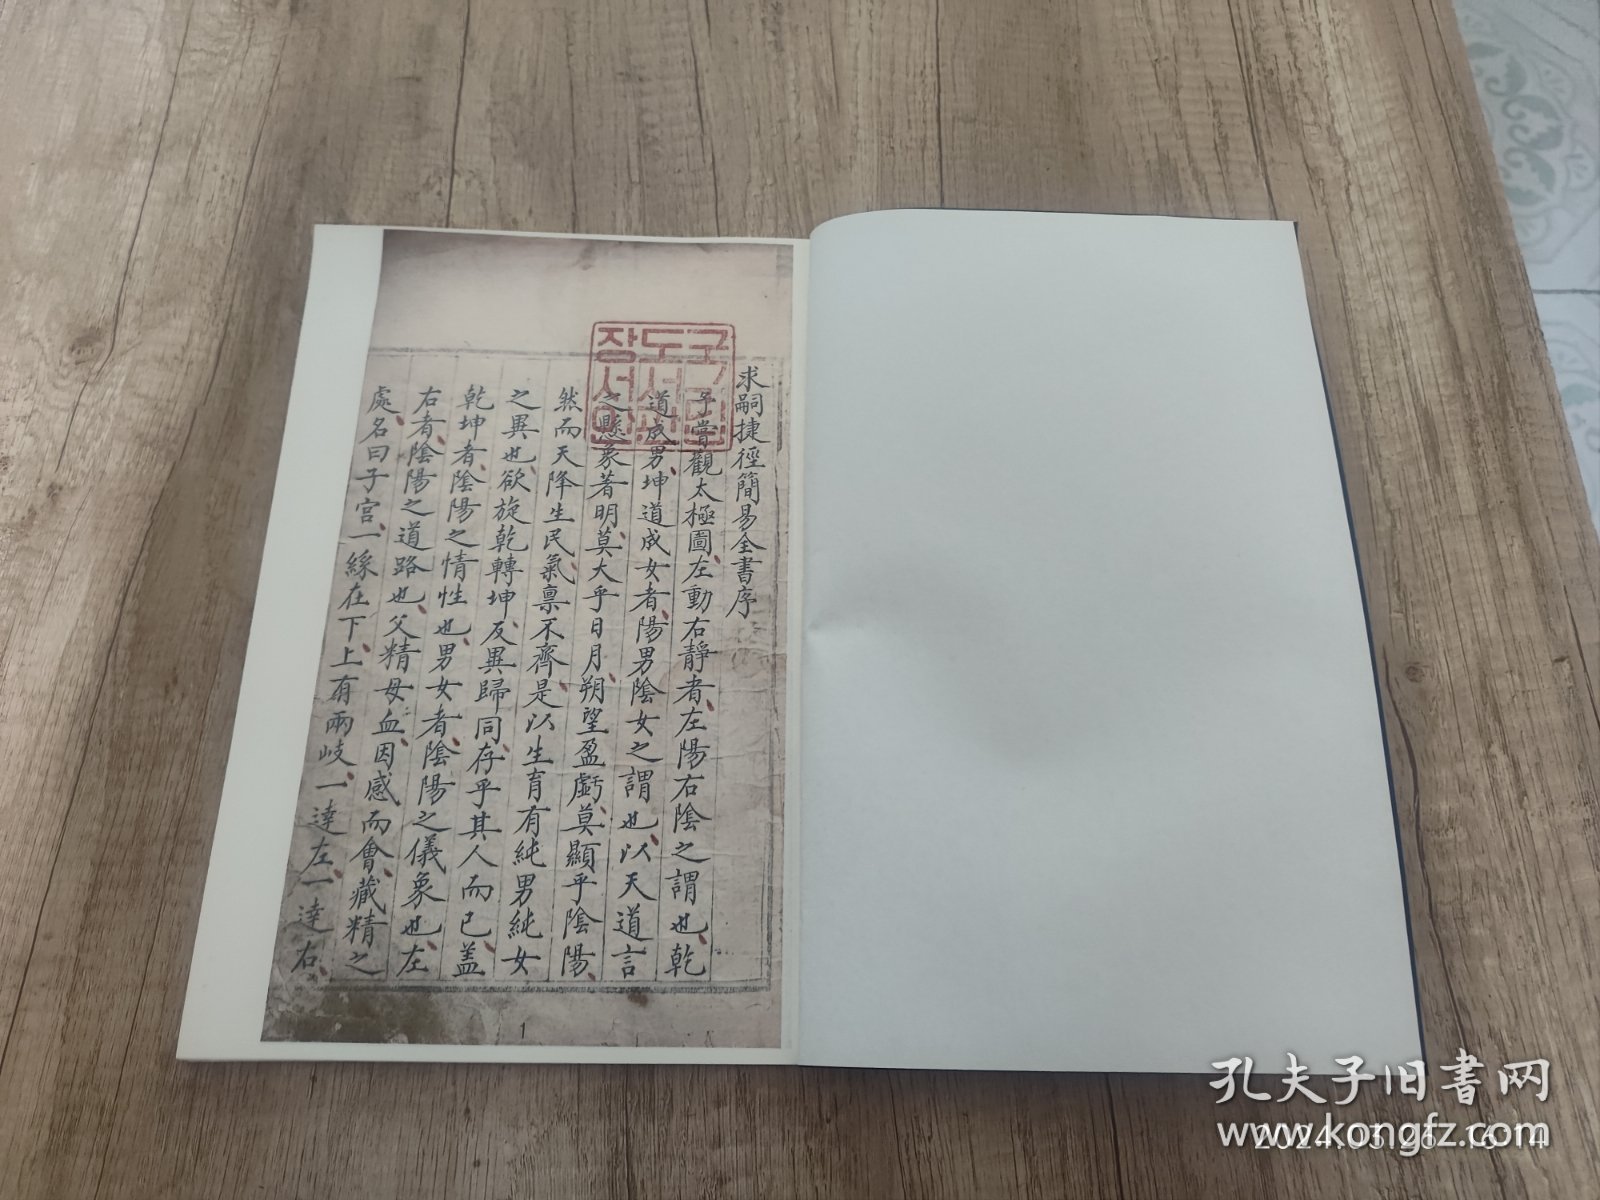 求嗣捷徑簡易全書序
予嘗觀太極圖左動右靜者左陽右陰之謂也乾
道成男坤道成女者陽男陰女之謂也以天道言
之懸象著明莫大乎日月朔望盈虧莫顯乎陰陽
然而天降生民氣禀不齊是以生育有純男純女
之異也欲旋乾轉坤反異歸同存乎其人而已盖
乾坤者陰陽之情性也男女者陰陽之儀象也左
右者陰陽之道路也父精母血因感而會藏精之
處名曰子宮一系在下上有兩岐一達左一達右
국립
도서관
장서인
1
孔夫子旧书网
www.kongfz.com
2024.05.26 16:14